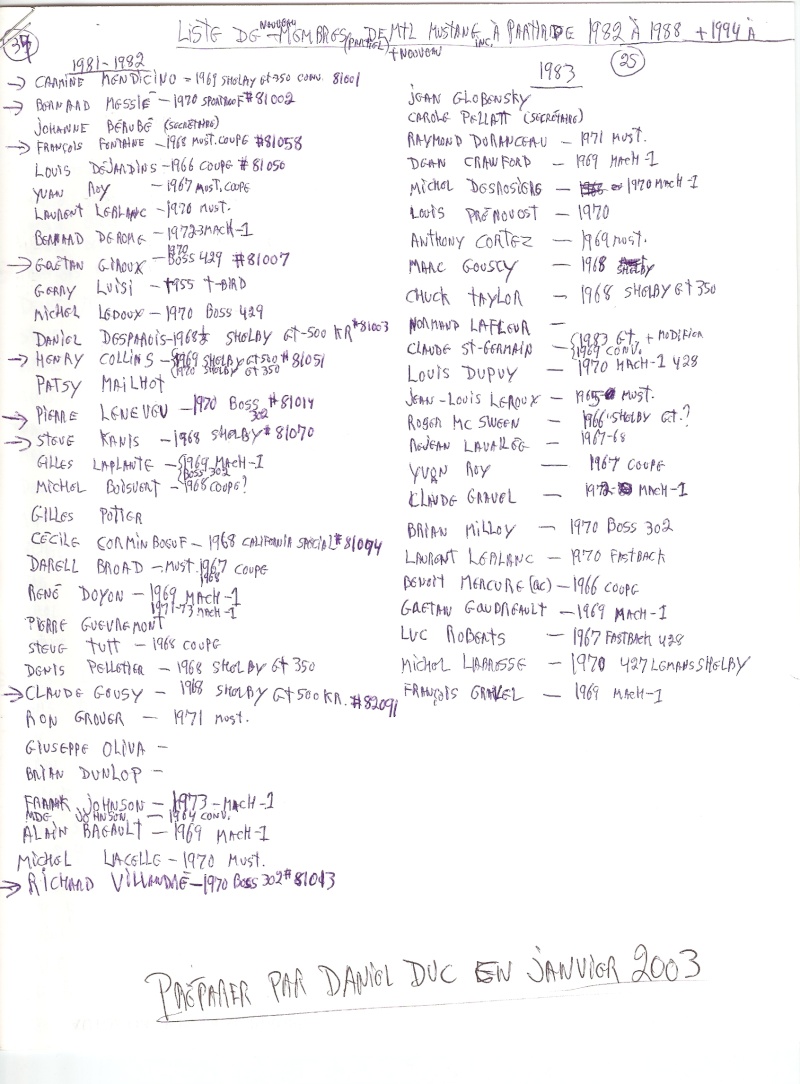 37
LISTE DE NOUVEAU MEMBRES (PARTIEL) DE MTL MUSTANG INC. À PARTIR DE 1982 À 1988 + 1994 À
+ NOUVEAU
1981-1982
→ CARMINE MENDICINO = 1969 SHELBY GT 350 CONV. 81001
→ BERNARD MESSIÉ - 1970 SPORTROOF #81002
JOHANNE BÉRUBÉ (SECRÉTAIRE)
→ FRANÇOIS FONTAINE - 1968 MUST. COUPE #81058
LOUIS DESJARDINS - 1966 COUPE #81050
YVAN ROY - 1967 MUST. COUPE
LAURENT LEBLANC - 1970 MUST.
BERNARD DEROME - 1972-3 MACH-1
→ GAÉTAN GIROUX - 1970 BOSS 429 #81007
GERRY LUISI - 1955 T-BIRD
MICHEL LEDOUX - 1970 BOSS 429
DANIEL DESPAROIS - 1968½ SHELBY GT-500 KR #81003
→ HENRY COLLINS - {1969 SHELBY GT 500 #81051
{1970 SHELBY GT 350
PATSY MAILHOT
→ PIERRE LENEVEU - 1970 BOSS 302 #81014
→ STEVE KANIS - 1968 SHELBY #81070
GILLES LAPLANTE - {1969 MACH-1
{BOSS 302
MICHEL BOISVERT - 1968 COUPE?
GILLES POTIER
CÉCILE CORMIN BOEUF - 1968 CALIFORNIA SPECIAL #81074
DARELL BROAD - MUST. 1967 COUPE
1968
RENÉ DOYON - 1969 MACH-1
1971-73 MACH-1
PIERRE GUEVREMONT
STEVE TUTT - 1968 COUPE
DENIS PELLETIER - 1968 SHELBY GT 350
→ CLAUDE GOUSY - 1968 SHELBY GT 500 KR. #82091
RON GROVER - 1971 MUST.
GIUSEPPE OLIVA -
BRIAN DUNLOP -
FRANK JOHNSON - 1973 - MACH-1
MDE JOHNSON - 1964 CONV.
ALAIN BAGAULT - 1969 MACH-1
MICHEL LACELLE - 1970 MUST.
→ RICHARD VILLANDRÉ - 1970 BOSS 302 #81013
1983 25
JEAN GLOBENSKY
CAROLE PELLATT (SECRÉTAIRE)
RAYMOND DURANCEAU - 1971 MUST.
DEAN CRAWFORD - 1969 MACH-1
MICHEL DESROSIERS - 1970 MACH-1
LOUIS PRÉNOVOST - 1970
ANTHONY CORTEZ - 1969 MUST.
MARC GOUSCY - 1968 SHELBY
CHUCK TAYLOR - 1968 SHELBY GT 350
NORMAND LAFLEUR -
CLAUDE ST-GERMAIN - {1983 GT, + MODIFIER
{1969 CONV.
LOUIS DUPUY - 1970 MACH-1 428
JEAN-LOUIS LEROUX - 1965 MUST.
ROGER MC SWEEN - 1966 SHELBY GT.?
RÉJEAN LAVALLÉE - 1967-68
YVAN ROY - 1967 COUPE
CLAUDE GRAVEL - 1972- MACH-1
BRIAN MILLOY - 1970 BOSS 302
LAURENT LEBLANC - 1970 FASTBACK
BENOIT MERCURE (QC) - 1966 COUPE
GAETAN GAUDREAULT - 1969 MACH-1
LUC ROBERTS - 1967 FASTBACK 428
MICHEL LABROSSE - 1970 427 LEMANS SHELBY
FRANÇOIS GRAVEL - 1969 MACH-1
PRÉPARER PAR DANIEL DUC EN JANVIER 2003